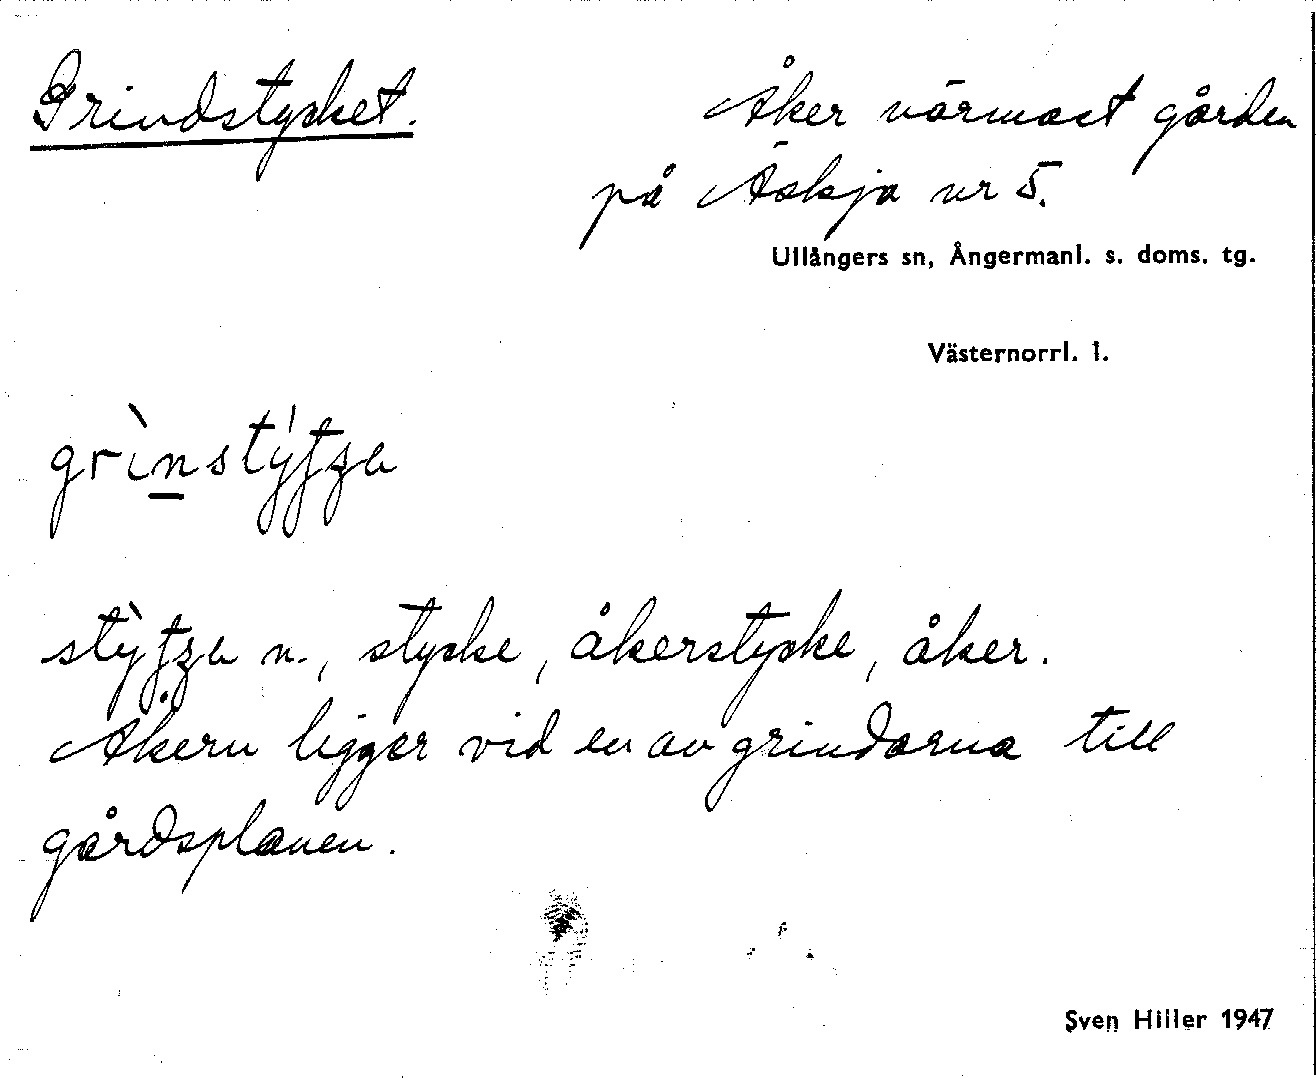 Grindstycket.
Åker närmast gården
på Äskja nr 5.
Ullångers sn, Ångermanl. s. doms. tg.
Västernorrl. l.
åkerstycke, åker.
Åkern ligger vid en av grindarna till
gårdsplanen.
Sven Hiller 1947